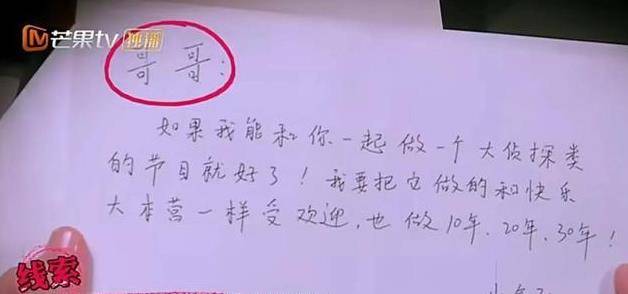 芒果tv 独播
哥哥：
如果我能和你一起做一个大侦探类
的节目就好了！我要把它做的和快乐
大本营一样受欢迎，也做10年、20年、30年！
线索